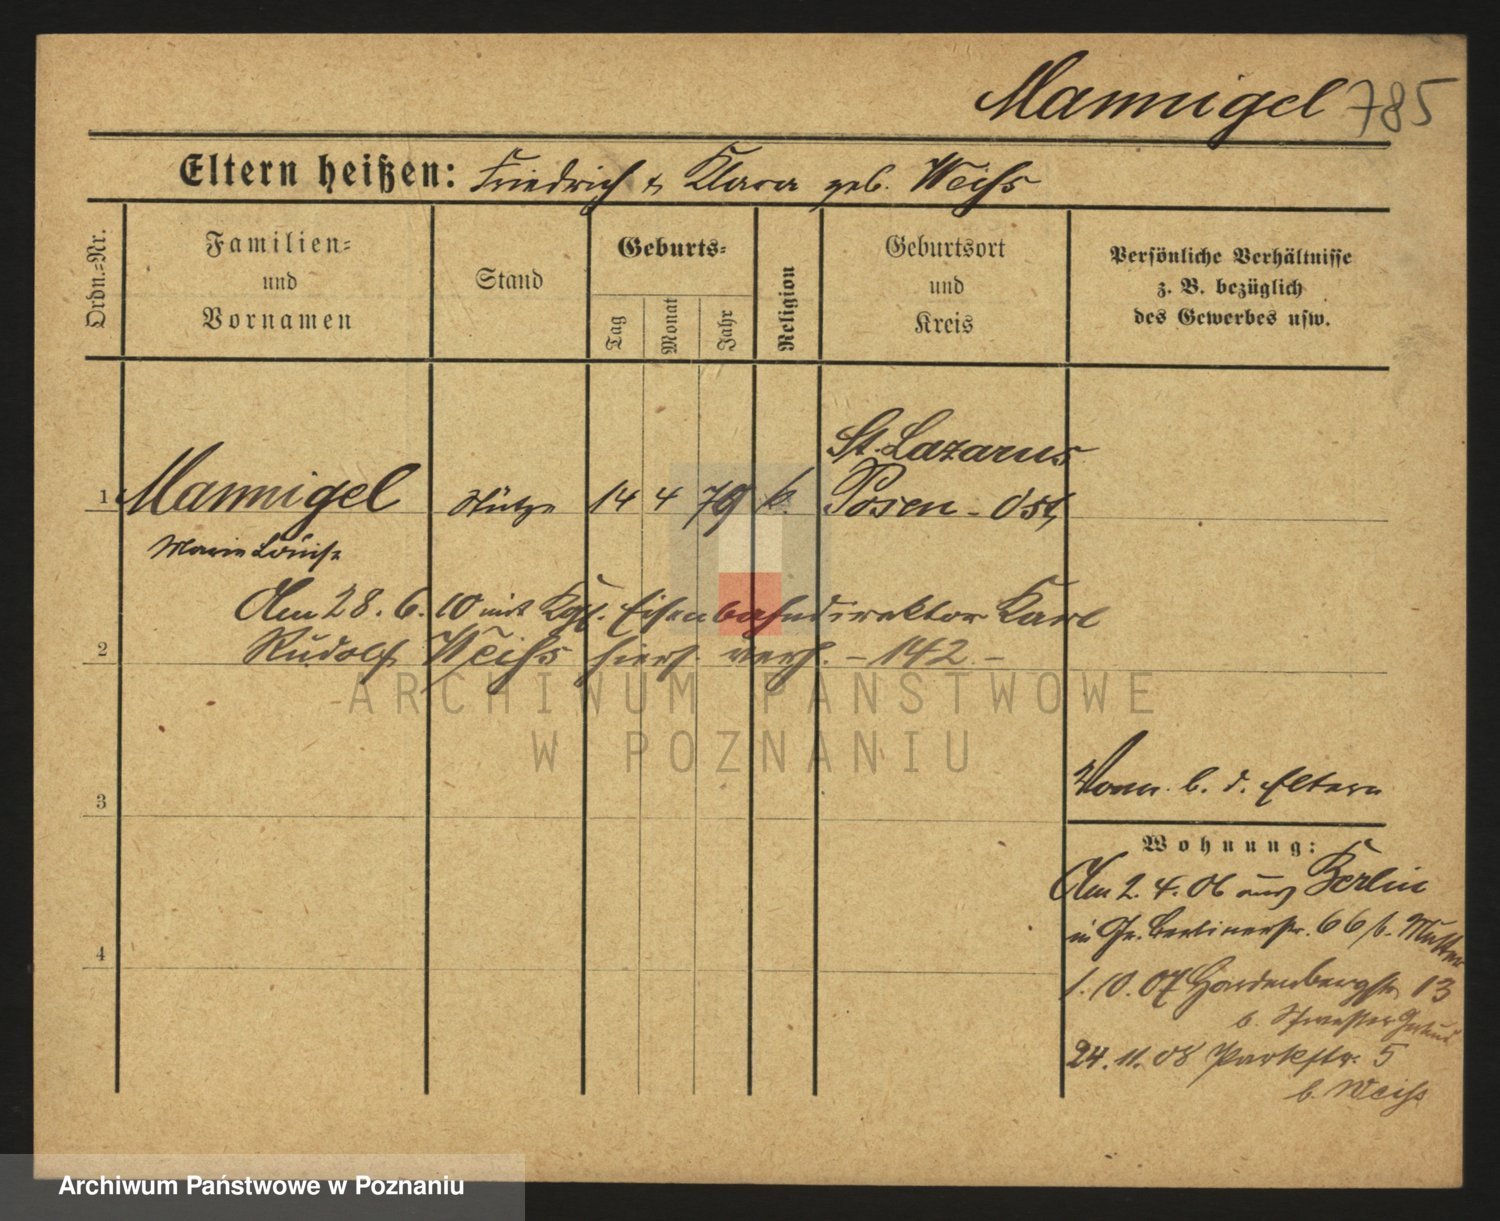 Mannigel 785
Eltern heißen: Friedrich & Klara geb. Weiſs
Ordn.-Nr.
Familien-
und
Vornamen
Stand
Geburts-
Tag
Monat
Jahr
Religion
Geburtsort
und
Kreis
Persönliche Verhältnisse
z. B. bezüglich
des Gewerbes usw.
St. Lazarus
1 Mannigel Stütze 14 4 79 k. Posen-Ost
Marie Louise
Am 28. 6. 10 mit Kgl. Eisenbahndirektor Karl
2 Rudolf Weiſs hiers. verh. - 142 -
ARCHIWUM PAŃSTWOWE
W POZNANIU
3
Wonn. b. d. Eltern
Wohnung:
Am 2. 4. 06 aus Berlin
in Gr. Berlinerstr. 66 b. Mutter
4
1. 10. 07 Hardenbergstr. 13
b. Schwester
24. 11. 08 Parkstr. 5
b. Weiſs
Archiwum Państwowe w Poznaniu